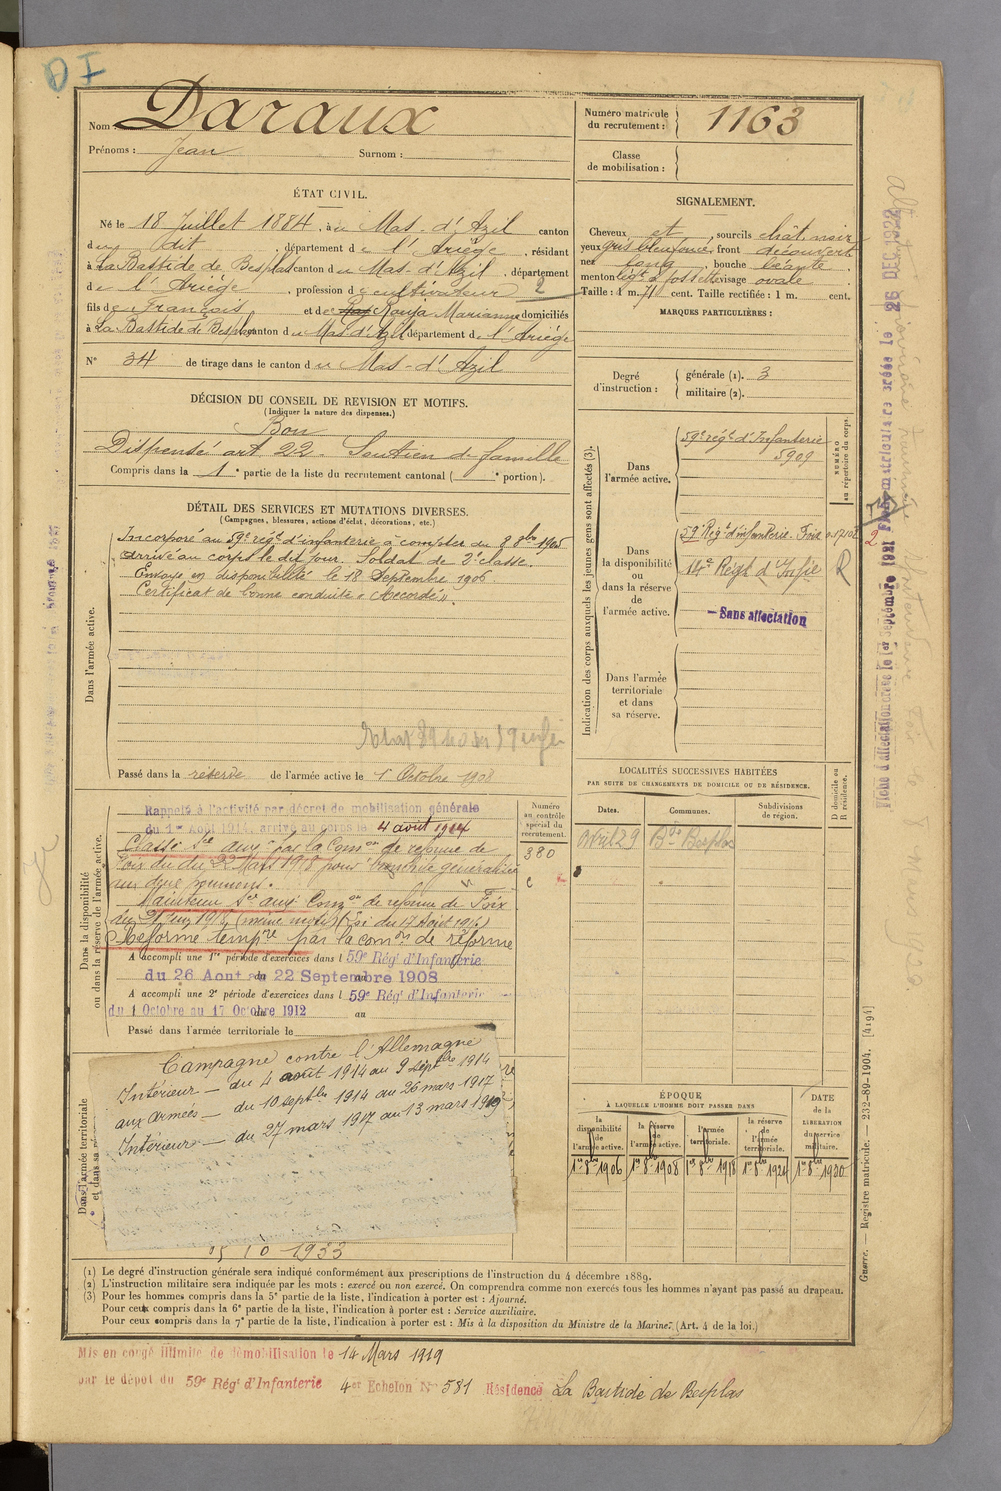 Nom Daraux
Prénoms : Jean Surnom :
Numéro matricule du recrutement : 1163
Classe de mobilisation :
ÉTAT CIVIL.
Né le 18 Juillet 1884, à u Mas-d'Azil canton
du dit, département de l'Ariège, résidant
à La Bastide de Besplas canton du Mas-d'Azil, département
de l'Ariège, profession de cultivateur 2
fils de François et de Rouja Marianne domiciliés
à La Bastide de Besplas canton du Mas-d'Azil département de l'Ariège
N° 34 de tirage dans le canton du Mas-d'Azil
SIGNALEMENT.
Cheveux et, sourcils chât. noir
yeux gris bleu foncé, front découvert
nez long, bouche béante
menton lig. à fossette visage ovale
Taille : 1 m. 71 cent. Taille rectifiée : 1 m. cent.
MARQUES PARTICULIÈRES :
Degré d'instruction : générale (1). 3
militaire (2).
DÉCISION DU CONSEIL DE REVISION ET MOTIFS.
(Indiquer la nature des dispenses.)
Bon
Dispensé art 22 - Soutien de famille
Compris dans la 1e partie de la liste du recrutement cantonal ( e portion).
DÉTAIL DES SERVICES ET MUTATIONS DIVERSES.
(Campagnes, blessures, actions d'éclat, décorations, etc.)
Dans l'armée active.
Incorporé au 59e régt d'infanterie à compter du 8 8bre 1905
arrivé au corps le dit jour. Soldat de 2e classe.
Envoyé en disponibilité le 18 Septembre 1906.
Certificat de bonne conduite « Accordé ».
Passé dans la réserve de l'armée active le 1 Octobre 1908
Dans la disponibilité ou dans la réserve de l'armée active.
Rappelé à l'activité par décret de mobilisation générale
du 1er Août 1914, arrivé au corps le 4 août 1914
Classé sce auxre par la Comon de réforme de
Foix du 22 Mars 1918 pour
Maintenu sce aux. Comon de réforme de Foix
Réformé tempre par la comon de réforme
A accompli une 1re période d'exercices dans l 59e Régt d'Infanterie
du 26 Aout au 22 Septembre 1908
A accompli une 2e période d'exercices dans l 59e Régt d'Infanterie
du 1 Octobre au 17 Octobre 1912 au
Passé dans l'armée territoriale le
Numéro au contrôle spécial du recrutement.
380
Dans l'armée territoriale et dans sa
Campagne contre l'Allemagne
Intérieur — du 4 août 1914 au 9 septbre 1914
aux armées — du 10 septbre 1914 au 26 mars 1917
Intérieur — du 27 mars 1917 au 13 mars 1919
10 1933
Indication des corps auxquels les jeunes gens sont affectés (3).
NUMÉRO au répertoire du corps.
Dans l'armée active.
59e régt d'Infanterie
5909
Dans la disponibilité ou dans la réserve de l'armée active.
59e Régt d'infanterie. Foix
14e Régt d'Infie R
Sans affectation
Dans l'armée territoriale et dans sa réserve.
LOCALITÉS SUCCESSIVES HABITÉES
PAR SUITE DE CHANGEMENTS DE DOMICILE OU DE RÉSIDENCE.
D domicile ou R résidence.
Dates. Communes. Subdivisions de région.
avril 29 Bde Besplas
ÉPOQUE
À LAQUELLE L'HOMME DOIT PASSER DANS
DATE de la LIBÉRATION du service militaire.
la disponibilité de l'armée active.
la réserve de l'armée active.
l'armée territoriale.
la réserve de l'armée territoriale.
1er 8bre 1906
1er 8bre 1908
1er 8bre 1918
1er 8bre 1924
1er 8bre 1930
(1) Le degré d'instruction générale sera indiqué conformément aux prescriptions de l'instruction du 4 décembre 1889.
(2) L'instruction militaire sera indiquée par les mots : exercé ou non exercé. On comprendra comme non exercés tous les hommes n'ayant pas passé au drapeau.
(3) Pour les hommes compris dans la 5e partie de la liste, l'indication à porter est : Ajourné.
Pour ceux compris dans la 6e partie de la liste, l'indication à porter est : Service auxiliaire.
Pour ceux compris dans la 7e partie de la liste, l'indication à porter est : Mis à la disposition du Ministre de la Marine. (Art. 4 de la loi.)
Guerre. — Registre matricule. — 232-89-1904. [4194]
Mis en congé illimité de démobilisation le 14 Mars 1919
par le dépôt du 59e Régt d'Infanterie 4er Echelon N° 581 Résidence La Bastide de Besplas